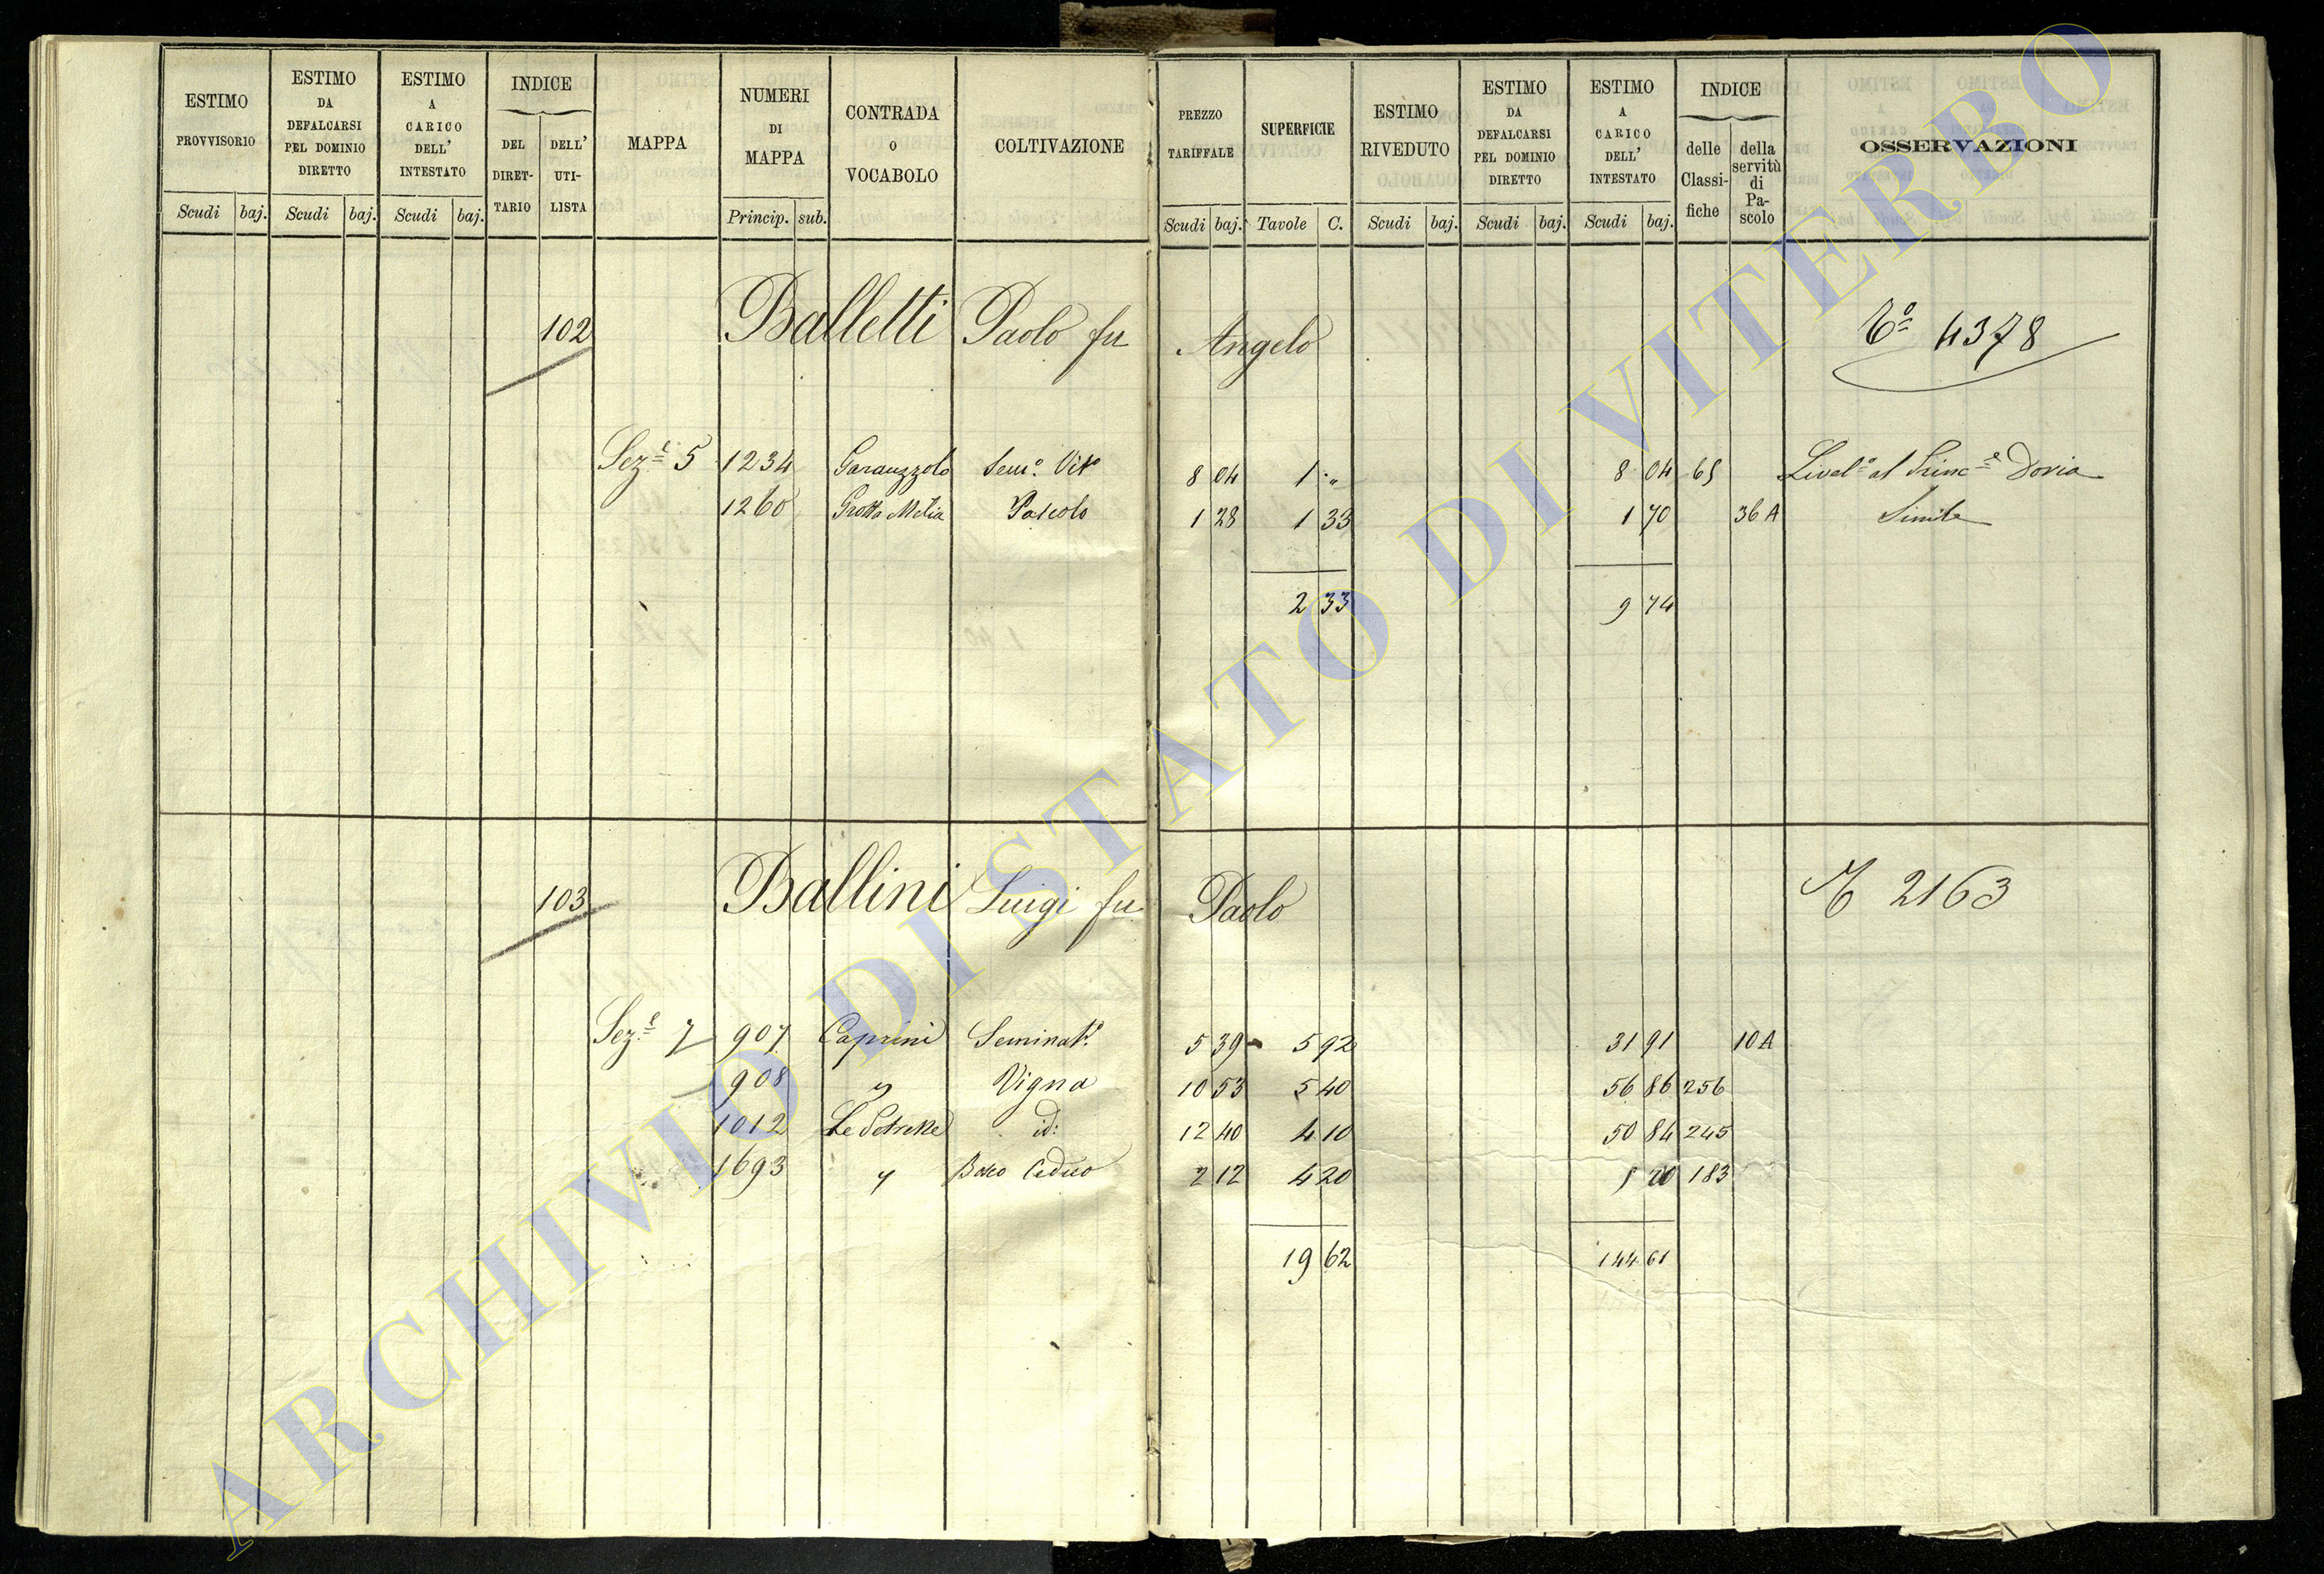 ESTIMO PROVVISORIO
Scudi baj.
ESTIMO DA DEFALCARSI PEL DOMINIO DIRETTO
Scudi baj.
ESTIMO A CARICO DELL' INTESTATO
Scudi baj.
INDICE
DEL DIRET-TARIO
DELL' UTI-LISTA
MAPPA
NUMERI DI MAPPA
Princip. sub.
CONTRADA O VOCABOLO
COLTIVAZIONE
PREZZO TARIFFALE
Scudi baj.
SUPERFICIE
Tavole C.
ESTIMO RIVEDUTO
Scudi baj.
ESTIMO DA DEFALCARSI PEL DOMINIO DIRETTO
Scudi baj.
ESTIMO A CARICO DELL' INTESTATO
Scudi baj.
INDICE
delle Classi-fiche
della servitù di Pa-scolo
OSSERVAZIONI
102 Balletti Paolo fu Angelo 4378
Sez.e 5 1234 Semo. Vito 8 04 1 " 8 04 65 Livelo. al Princ.e Doria
1260 Grotta Pascolo 1 28 1 33 1 70 36 A Simile
2 33 9 74
103 Ballini Luigi fu Paolo 2163
Sez.e 7 907 Caprini Seminato. 5 39 5 92 31 91 10 A
908 " Vigna 10 53 5 40 56 86 256
1012 Le id: 12 40 4 10 50 84 245
1693 " Bosco Ceduo 2 12 4 20 183
19 62 144 61
ARCHIVIO DI STATO DI VITERBO